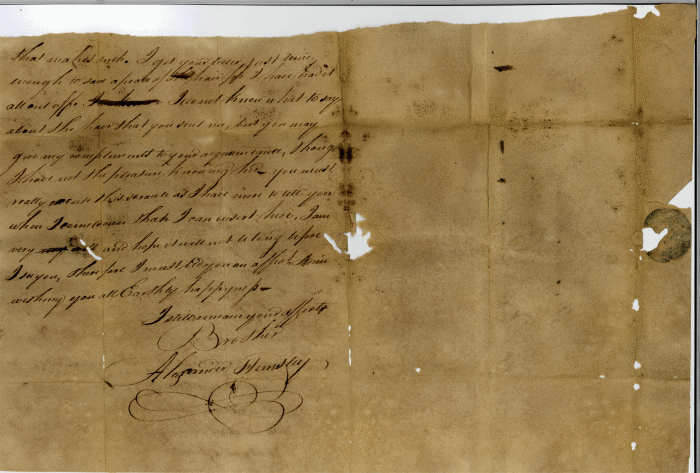 that makes such. I got your letter just time
enough to save a peace of hair, for I have had it
all cut off. I do not know what to say
about the hair that you sent me, but you may
give my compliments to your acquaintance, though
I have not the pleasure knowing her you must
really excuse this scrawle as I have more to tell you
when I come down than I can insert here, I am
very and hope it will not be long before
I see you, therefore I must bid you an affect.
wishing you all Earthly happyness
I still remain your affecte
Brother
Alexander Hemsley